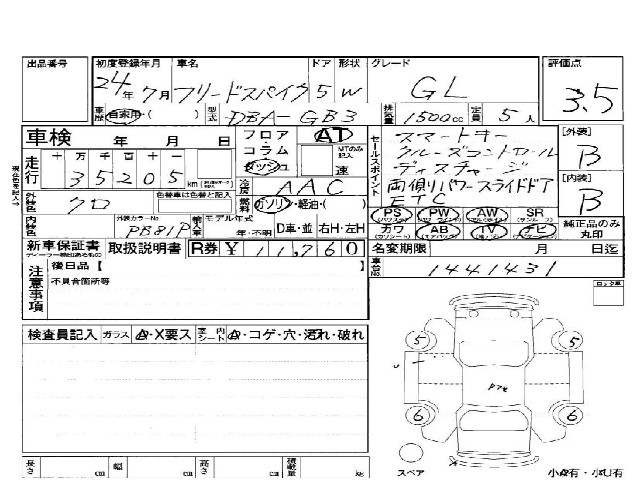 出品番号 初度登録年月 車名 ドア 形状 グレード 評価点
24年7月 フリードスパイク 5 W GL 3.5
車歴 自家用・( ) 型式 DBA-GB3 排気量 1500cc 定員 5人
車検 年 月 日 フロア・コラム・ダッシュ AT MTのみ記入 速
セールスポイント スマートキー
クルーズコントロール
ディスチャージ
両側リパワースライドドア
ETC
[外装] B
[内装] B
走行 十万千百十一 35205 km
冷房 AAC
外装色 クロ 色替車は色替と記入 燃料 ガソリン・軽油・( )
内装色 外装カラーNo. PB81P 輸入車 モデル年式 年・不明 D車・並 右H・左H
PS PW AW SR
カワ AB TV ナビ
純正品のみ丸印
新車保証書 取扱説明書 R券 ¥11,760
名変期限 月 日迄
注意事項 後日品【
不具合箇所等
車台No. 1441431
ロック車
検査員記入 ガラス A・X要ス 室内シート A・コゲ・穴・汚れ・破れ
5 5
6 6
スペア 小A有・小U有
長さ cm 幅 cm 高さ cm 積載量 kg